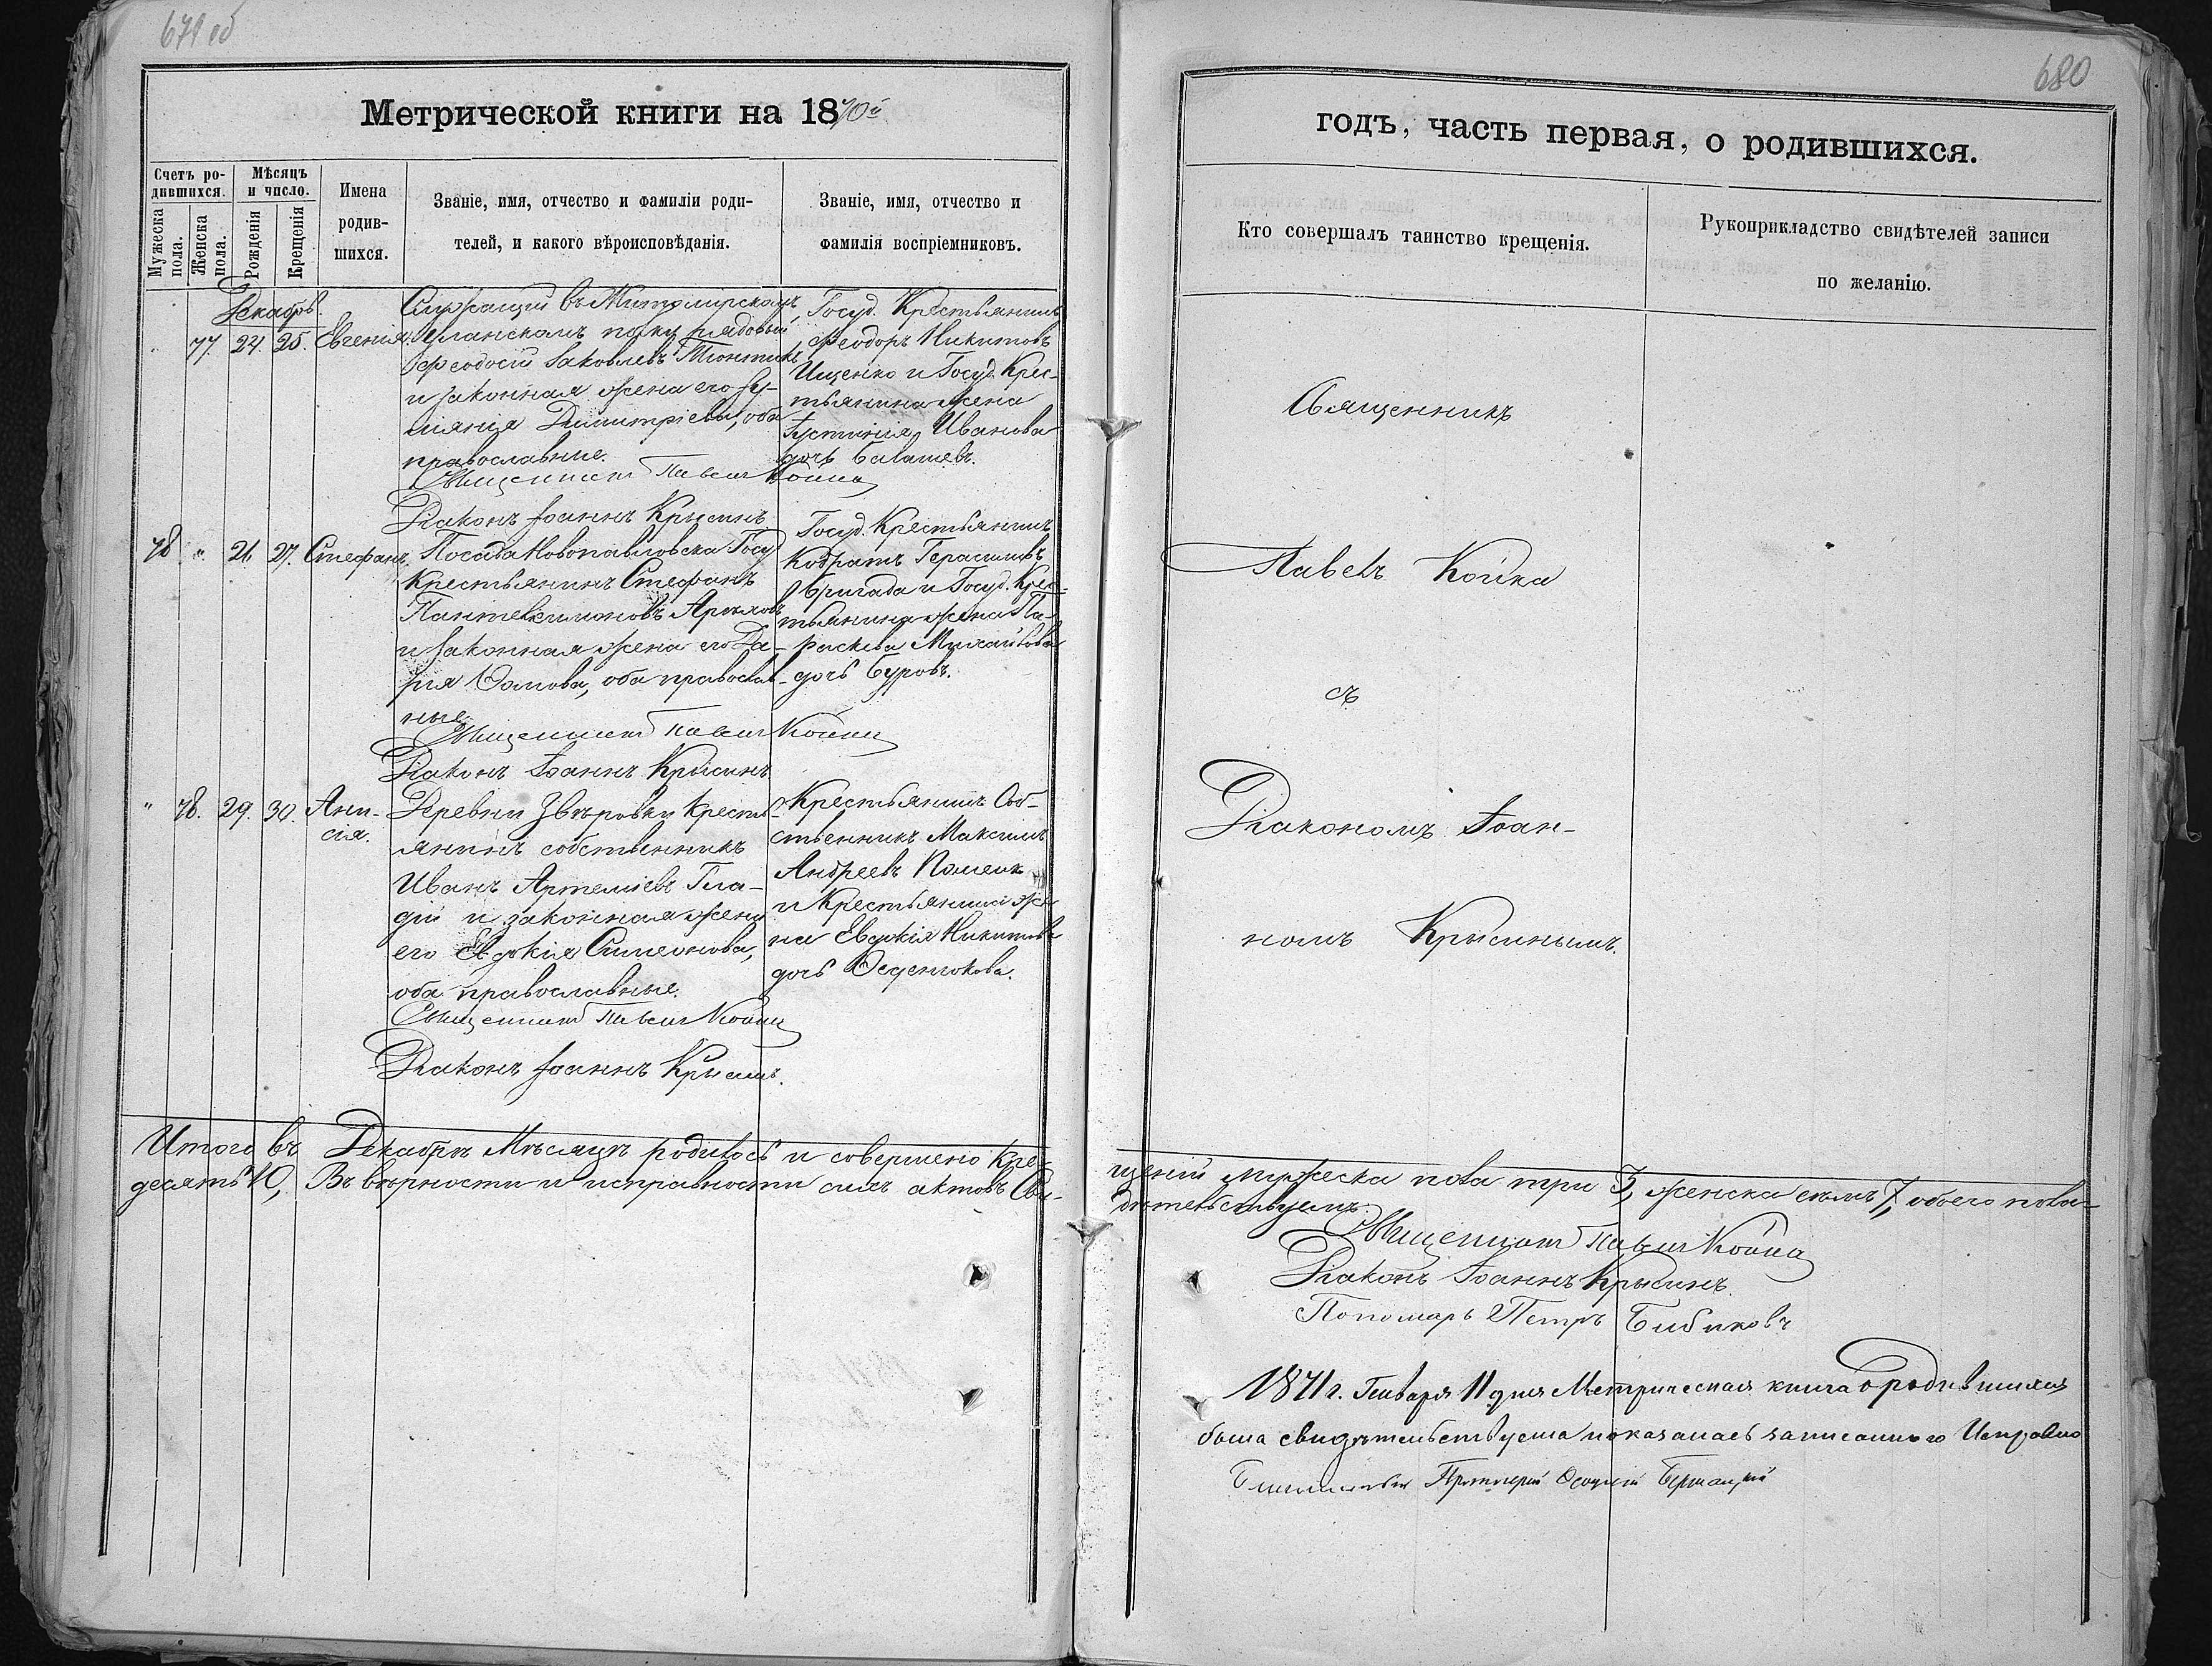 679 об
680
Метрической книги на 1870й
годъ, часть первая, о родившихся.
Счетъ родившихся.
Мужеска пола.
Женска пола.
Мѣсяцъ и число.
Рожденія
Крещенія
Имена родившихся.
Званіе, имя, отчество и фамиліи родителей, и какого вѣроисповѣданія.
Званіе, имя, отчество и фамилія воспріемниковъ.
Кто совершалъ таинство крещенія.
Рукоприкладство свидѣтелей записи
по желанію.
Декабрь.
77. 24. 25. Евгенія.
Служащій въ Житомірскомъ
Уланскомъ полку рядовый
Феодосій Яковлевъ
и законная жена его Іу-
ліанія Димитріева, оба
православные.
Священникъ Павелъ Койка
Діаконъ Іоаннъ Крысинъ
Госуд. Крестьянинъ
Феодоръ Никитовъ
Ищенко и Госуд. Крес-
тьянина жена
Іустинія Иванова
дочь Балашевъ.
78 " 26. 27. Стефанъ.
Посада Новопавловска Госуд
Крестьянинъ Стефанъ
Пантелеимоновъ
и законная жена его Да-
рія Ѳомова, оба православ-
ные
Священникъ Павелъ Койка
Діаконъ Іоаннъ Крысинъ
Госуд. Крестьянинъ
Кодратъ Герасимовъ
Бригада и Госуд. Крес-
тьянина жена Па-
раскева Михайлова
дочь Буровъ.
" 78. 29. 30. Ани-
сія.
Деревни Звѣровки Кресть-
янинъ собственникъ
Иванъ Артеміевъ Гла-
дій и законная жена
его Евдокія Симеонова,
оба православные.
Священникъ Павелъ Койка
Діаконъ Іоаннъ Крысинъ.
Крестьянинъ Соб-
ственникъ Максимъ
Андреевъ
и Крестьянина же-
на Евдокія Никитова
дочь
Священникъ
Павелъ Койка
съ
Діакономъ Іоан-
номъ Крысинымъ.
Итого въ Декабрѣ Мѣсяцѣ родилось и совершено Кре-
щеній мужеска пола три 3, женска семь 7, обоего пола
десять 10, Въ вѣрности и исправности сихъ актовъ Сви-
дѣтельствуемъ.
Священникъ Павелъ Койка
Діаконъ Іоаннъ Крысинъ.
Пономарь Петръ Бибиковъ
1871 г. Генваря 11 дня Метрическая книга о родившихся
была свидѣтельствуема и оказалась записанного Исправно
Благочинный Протоіерей